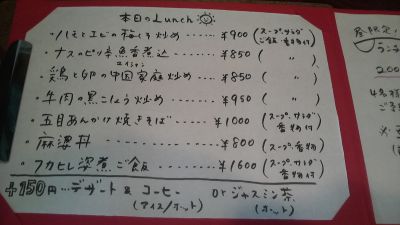 本日のLunch
・ハムとエビの梅じそ炒め……¥900(スープ、サラダ ご飯、香物付)
・ナスのピリ辛魚香煮込……¥850( 〃 )
ユイシャン
・鶏と卵の中国家庭炒め……¥850( 〃 )
・牛肉の黒こしょう炒め……¥950( 〃 )
・五目あんかけ焼きそば……¥1000(スープ、サラダ 香物付)
・麻婆丼……¥800(スープ、香物付)
・フカヒレ姿煮ご飯……¥1600(スープ、サラダ 香物付)
+150円…デザート & コーヒー or ジャスミン茶
(アイス/ホット) (ホット)